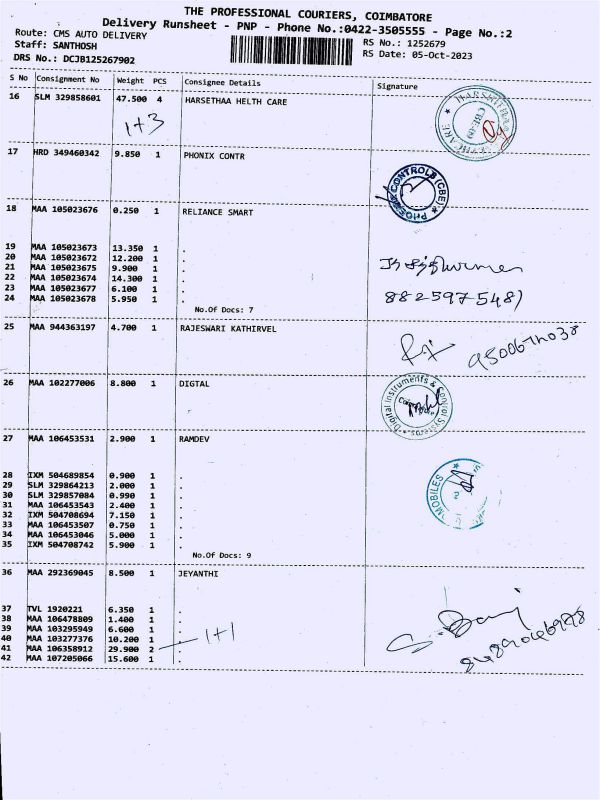 THE PROFESSIONAL COURIERS, COIMBATORE
Delivery Runsheet - PNP - Phone No.:0422-3505555 - Page No.:2
Route: CMS AUTO DELIVERY
RS No.: 1252679
Staff: SANTHOSH
RS Date: 05-Oct-2023
DRS No.: DCJB125267902
S No Consignment No Weight PCS Consignee Details Signature
16 SLM 329858601 47.500 4 HARSETHAA HELTH CARE
1+3
17 HRD 349460342 9.850 1 PHONIX CONTR
CONTROLS (CBE)
18 MAA 105023676 0.250 1 RELIANCE SMART
19 MAA 105023673 13.350 1 .
20 MAA 105023672 12.200 1 .
21 MAA 105023675 9.900 1 .
22 MAA 105023674 14.300 1 .
23 MAA 105023677 6.100 1 .
24 MAA 105023678 5.950 1 .
No.Of Docs: 7
25 MAA 944363197 4.700 1 RAJESWARI KATHIRVEL
26 MAA 102277006 8.800 1 DIGTAL
Digital Instruments & Control Systems
27 MAA 106453531 2.900 1 RAMDEV
MOBILES
28 IXM 504689854 0.900 1 .
29 SLM 329864213 2.000 1 .
30 SLM 329857084 0.990 1 .
31 MAA 106453543 2.400 1 .
32 IXM 504708694 7.150 1 .
33 MAA 106453507 0.750 1 .
34 MAA 106453046 5.000 1 .
35 IXM 504708742 5.900 1 .
No.Of Docs: 9
36 MAA 292369045 8.500 1 JEYANTHI
37 TVL 1920221 6.350 1 .
38 MAA 106478809 1.400 1 .
39 MAA 103295949 6.600 1 .
40 MAA 103277376 10.200 1 .
41 MAA 106358912 29.900 2 . 1+1
42 MAA 107205066 15.600 1 .